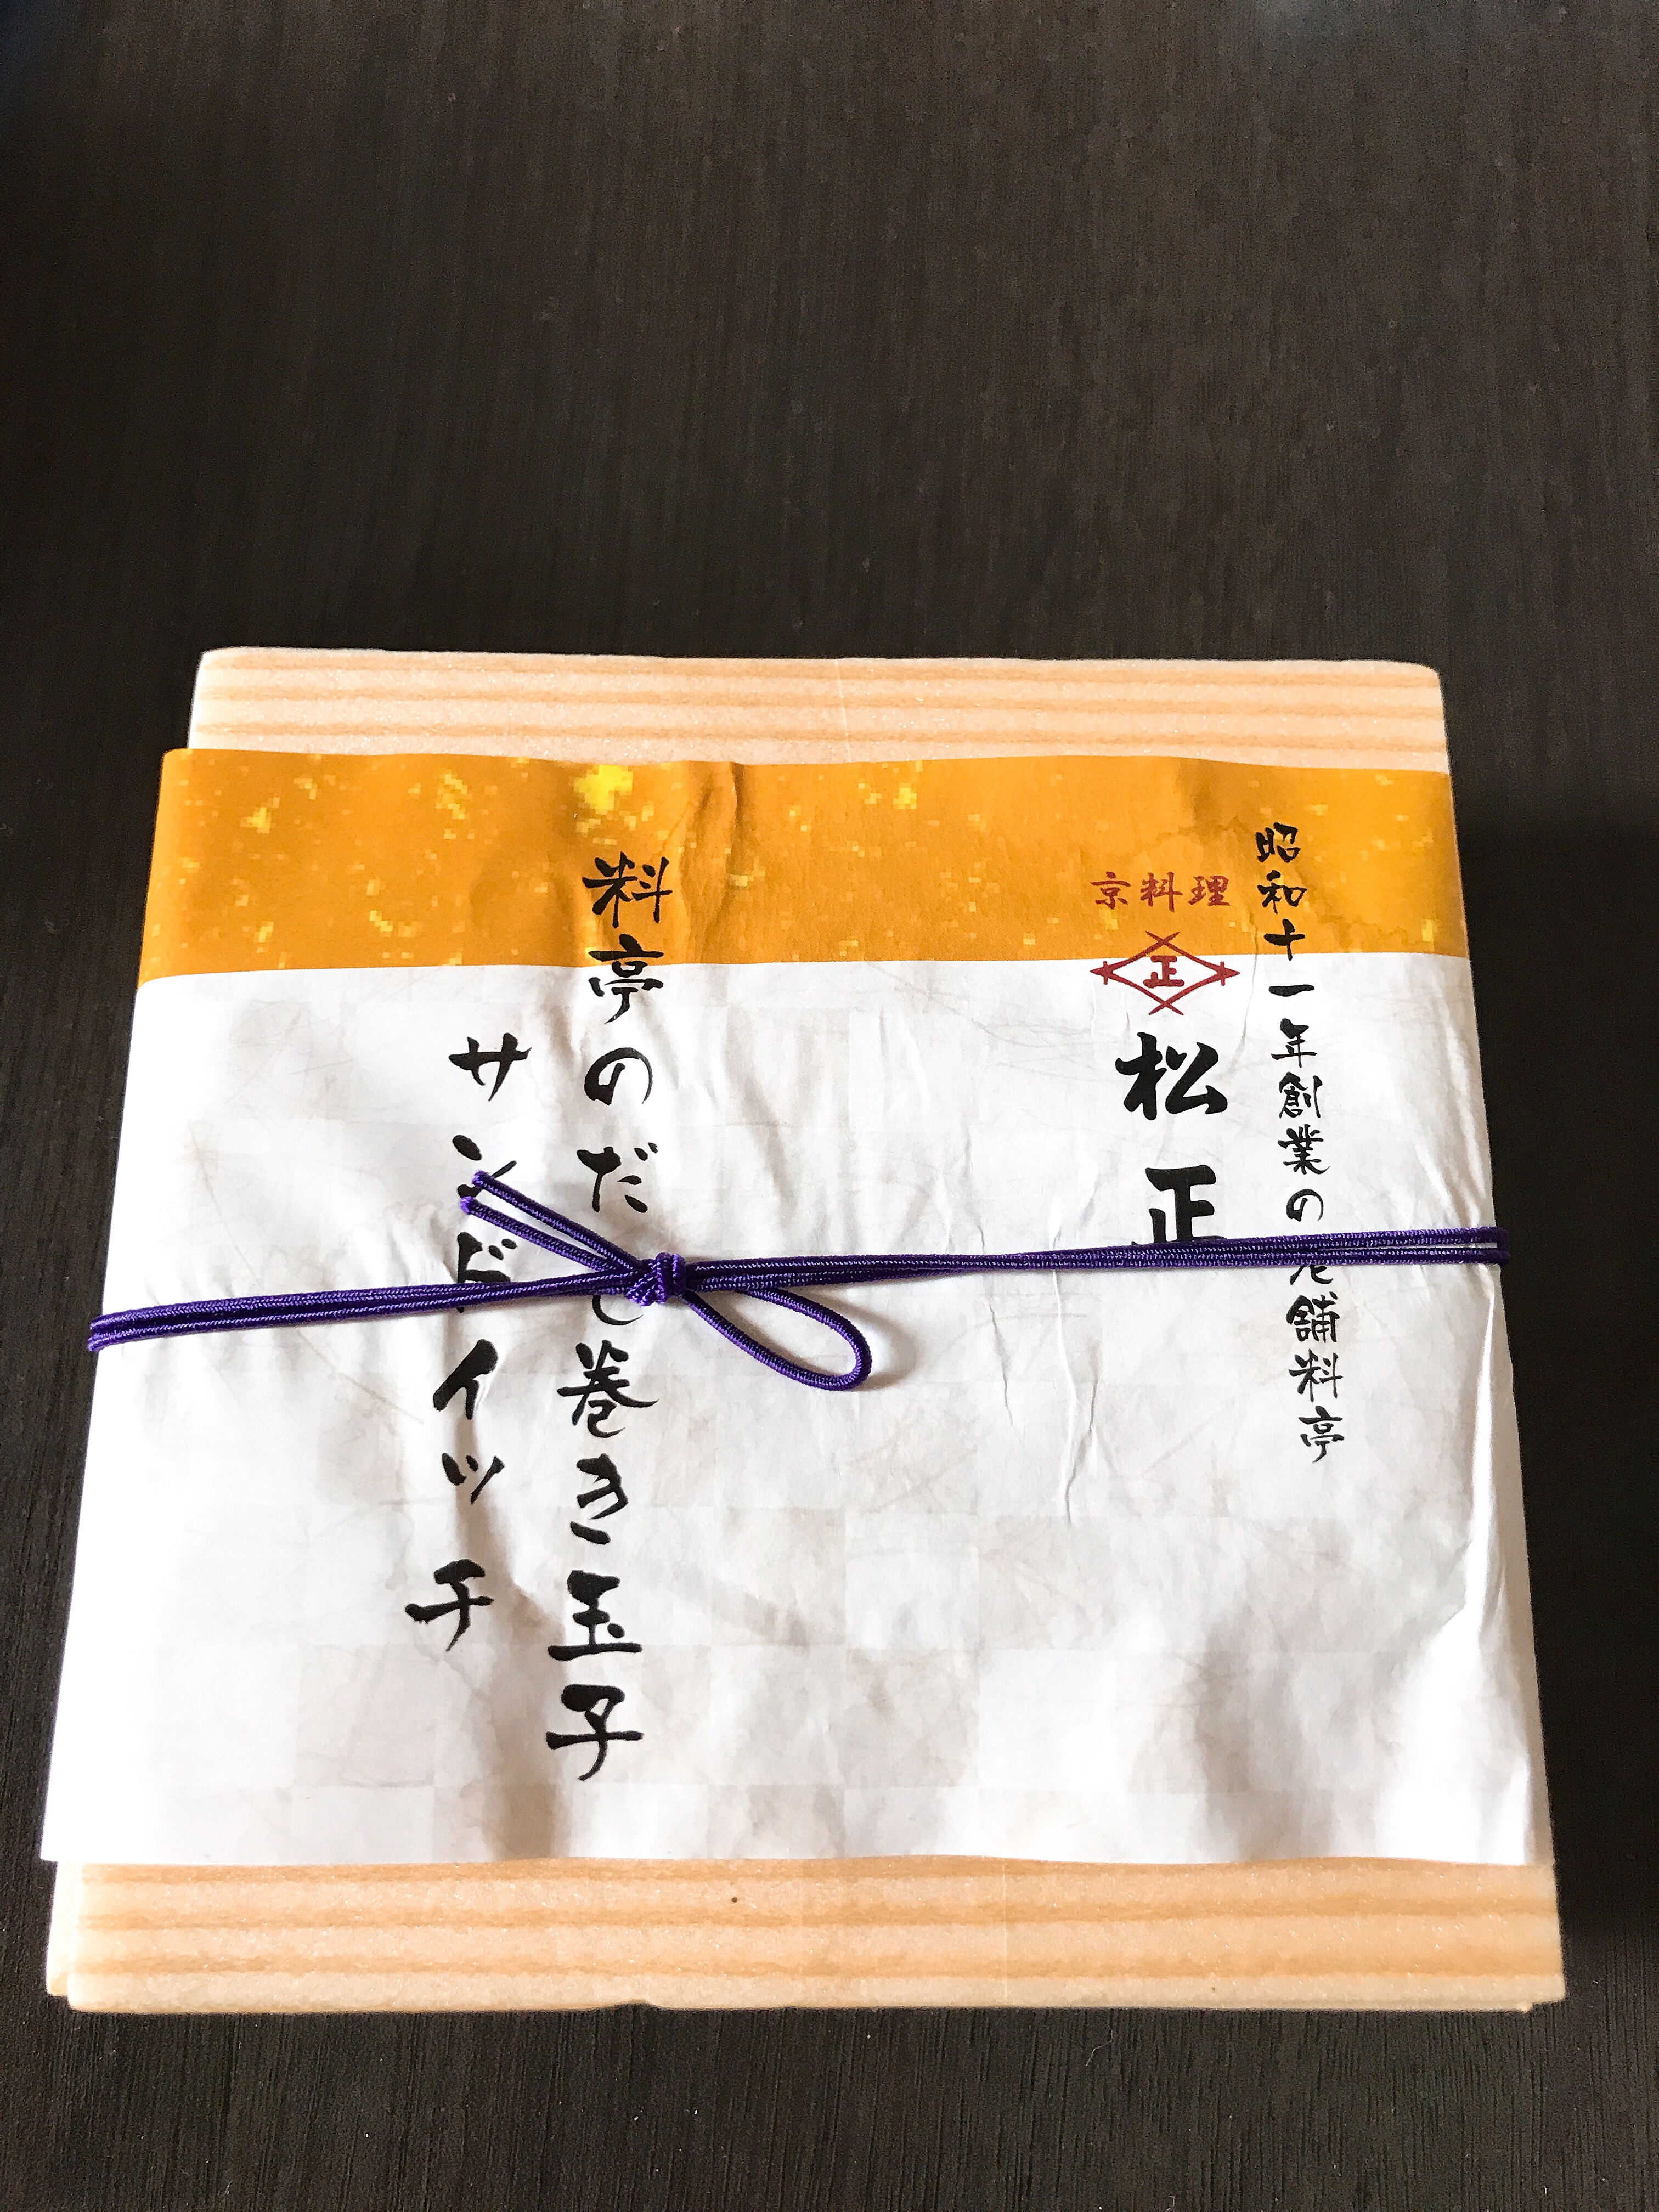 昭和十一年創業の老舗料亭
京料理
正
松正
料亭のだし巻き玉子
サンドイッチ